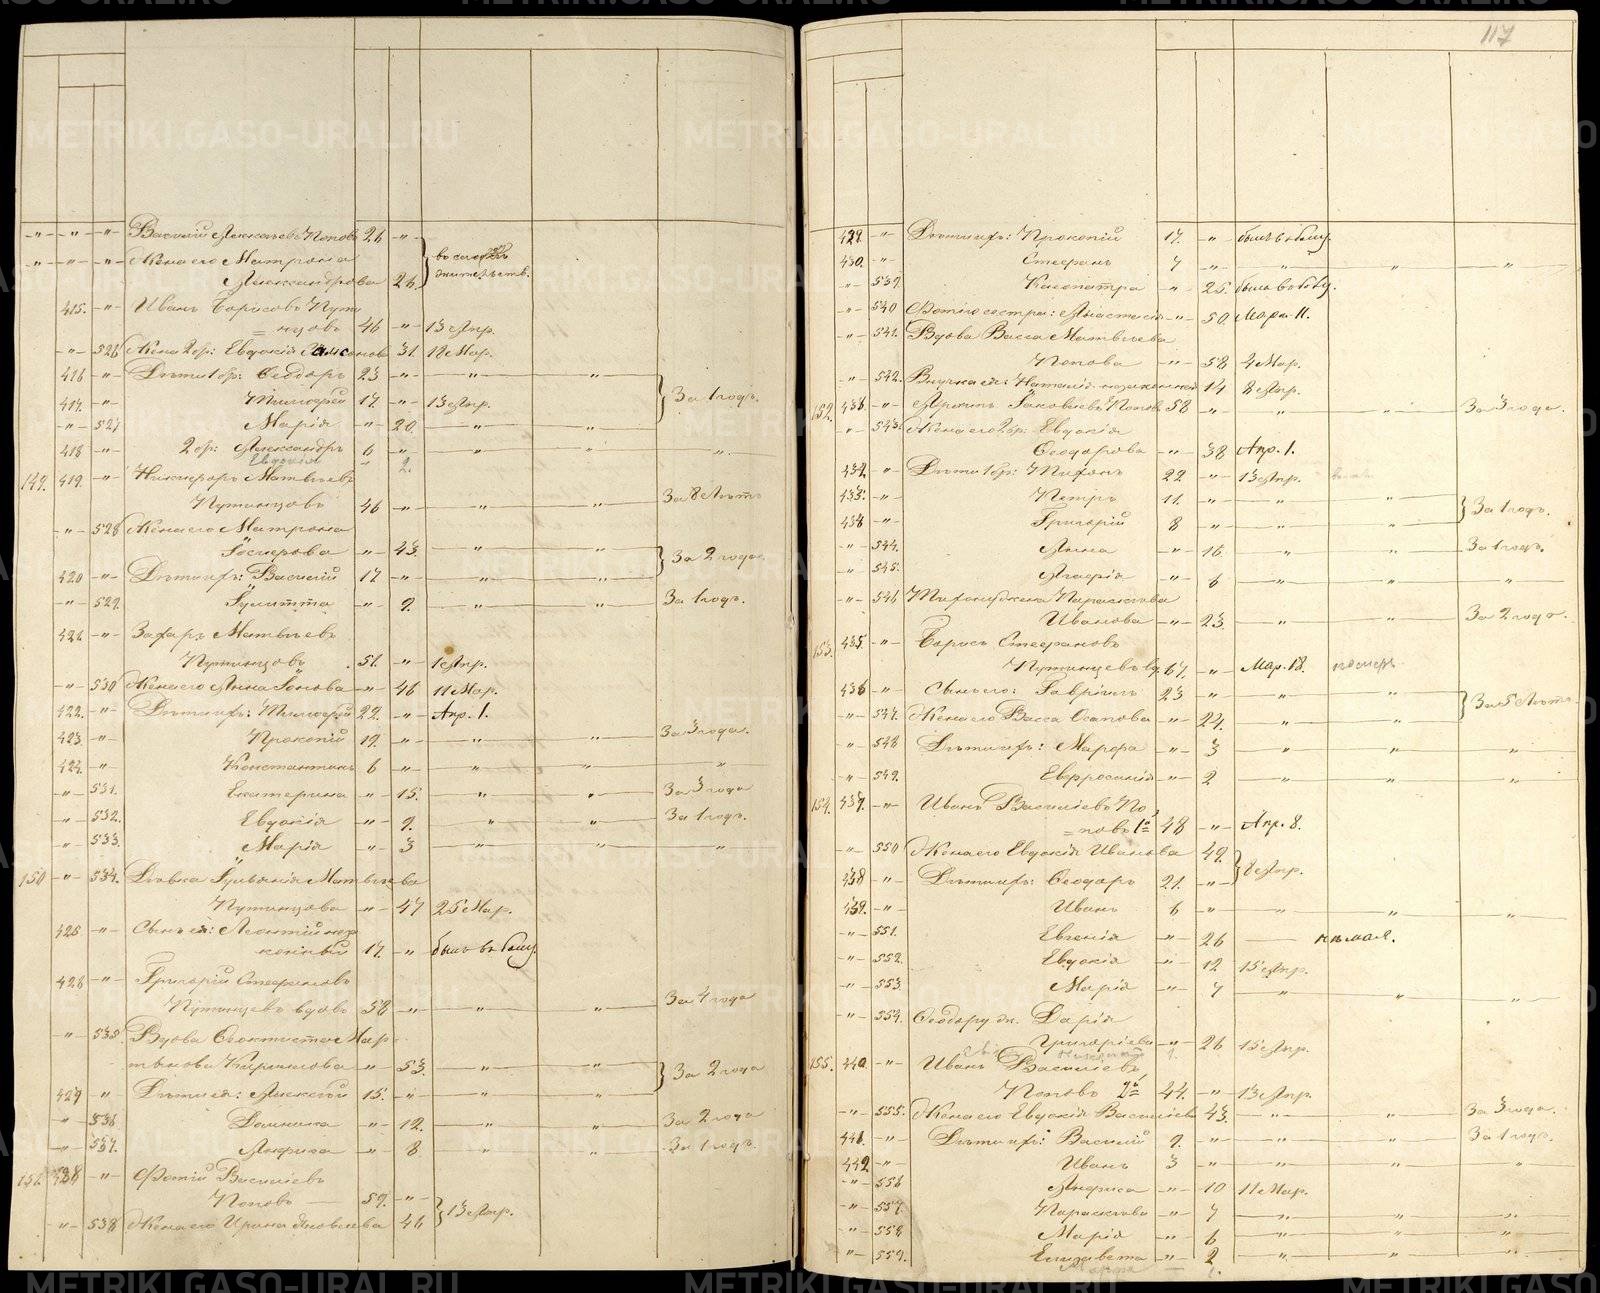 -"- -"- -"- Василий Алексеевъ Поповъ 26 -"-
-"- -"- -"- Жена его Матрона во
Александрова 26.
415. -"- Иванъ Борисовъ Пути
= нцовъ 46 -"- 13 Апр.
-"- 526 Жена 2 бр: Евдокія 31. 12 Мар.
416 -"- Дѣти 1 бр: Ѳеодоръ 23 -"- -"- -"-
За 1 годъ.
417. -"- Тимоѳей 17. -"- 13 Апр.
-"- 527 Марія -"- 20. -"- -"-
418 -"- 2 бр: Александръ 6 -"- -"- -"- -"-
Евдокія " 2.
149. 419. -"- Никифоръ Матвѣевъ
Путинцовъ 46 -"- -"- -"- За 8 лѣтъ
-"- 528 Жена его Матрона
-"- 43. -"- -"-
За 2 года
420 -"- Дѣти ихъ: Василій 17 -"- -"- -"-
-"- 529. Іулитта -"- 9. -"- -"- За 1 годъ.
421 -"- Захаръ Матвѣевъ
Путинцовъ 51. -"- 1 Апр.
-"- 530 Жена его Анна Іонова -"- 46 11 Мар.
422. -"- Дѣти ихъ: Тимоѳей 22. -"- Апр. 1.
423. -"- Прокопій 19. -"- -"- -"- За 3 года.
424. -"- Константинъ 6 -"- -"- -"- -"-
-"- 531. Екатерина -"- 15. -"- -"- За 3 года
-"- 532. Евдокія -"- 9. -"- -"- За 1 годъ.
-"- 533. Марія -"- 3 -"- -"- -"-
150 -"- 534. Дѣвка Іуліанія Матвѣева
Путинцова -"- 47 25 Мар.
425 -"- Сынъ ея: Леонтій
17. -"- былъ
426 -"- Григорій Стефановъ
Путинцевъ вдовъ 58 -"- -"- -"- За 4 года
-"- 535. Вдова Ѳеоктиста Мар
тьянова -"- 53. -"- -"-
За 2 года
427 -"- Дѣти ея: Алексѣй 15. -"- -"- -"-
-"- 536 Домнина -"- 12. -"- -"- За 2 года
-"- 537. -"- 8 -"- -"- За 1 годъ.
151. 428 -"- Фотій Василіевъ
Поповъ 59. -"- 13 Апр.
-"- 538 Жена его Ирина Яковлева -"- 46
117
429. -"- Дѣти ихъ: Прокопій 17. -"- былъ
430. -"- Стефанъ 7 -"- -"- -"- -"-
-"- 539. Клеопатра -"- 25. была
-"- 540 Фотію сестра: Анастасія -"- 50. Мар. 11.
-"- 541. Вдова Васса Матвѣева
Попова -"- 58 4 Мар.
-"- 542. Внучка ея: Наталія 14 8 Апр.
152. -"- Яковлевъ Поповъ 58 -"- -"- -"- За 3 года.
-"- 543. Жена его 2 бр: Евдокія
Ѳеодорова -"- 38 Апр. 1.
432. -"- Дѣти 1 бр: 22 -"- 13 Апр.
433. -"- Петръ 11. -"- -"- -"-
За 1 годъ.
434 -"- Григорій 8 -"- -"- -"-
-"- 544. Анна -"- 16. -"- -"- За 1 годъ.
-"- 545. Агафія -"- 6 -"- -"- -"-
-"- 546 жена Параскева
Иванова -"- 23. -"- -"- За 2 года.
153. 435. -"- Борисъ Стефановъ
Путинцевъ вд. 67. -"- Мар. 18.
436 -"- Сынъ его: Гавріилъ 23 -"- -"- -"-
За 5 лѣтъ
-"- 547. Жена его Васса Осипова -"- 24. -"- -"-
-"- 548 Дѣти ихъ: Марфа -"- 3 -"- -"- -"-
-"- 549. Евфросинія -"- 2 -"- -"- -"-
154. 437. -"- Иванъ Василіевъ По
= повъ 1й 48 -"- Апр. 8.
-"- 550 Жена его Евдокія Иванова 49.
8 Апр.
438 -"- Дѣти ихъ: Ѳеодоръ 21. -"-
439. -"- Иванъ 6 -"- -"- -"- -"-
-"- 551. Евгенія -"- 26
-"- 552. Евдокія -"- 12 15 Апр.
-"- 553. Марія -"- 7 -"- -"- -"-
-"- 554. Ѳеодору ж. Дарія
Григоріева -"- 26 15 Апр.
155. 440 -"- Иванъ Василіевъ
Поповъ 2й 44. -"- 13 Апр.
-"- 555. Жена его Евдокія Василіева 43. -"- -"- За 3 года.
441. -"- Дѣти ихъ: Василій 9. -"- -"- -"- За 1 годъ.
442 -"- Иванъ 3 -"- -"- -"- -"-
-"- 556 -"- 10 11 Мар.
-"- 557. Параскева -"- 7 -"- -"- -"-
-"- 558 Марія -"- 6 -"- -"- -"-
-"- 559. Елизавета -"- 2 -"- -"- -"-
METRIKI.GASO-URAL.RU